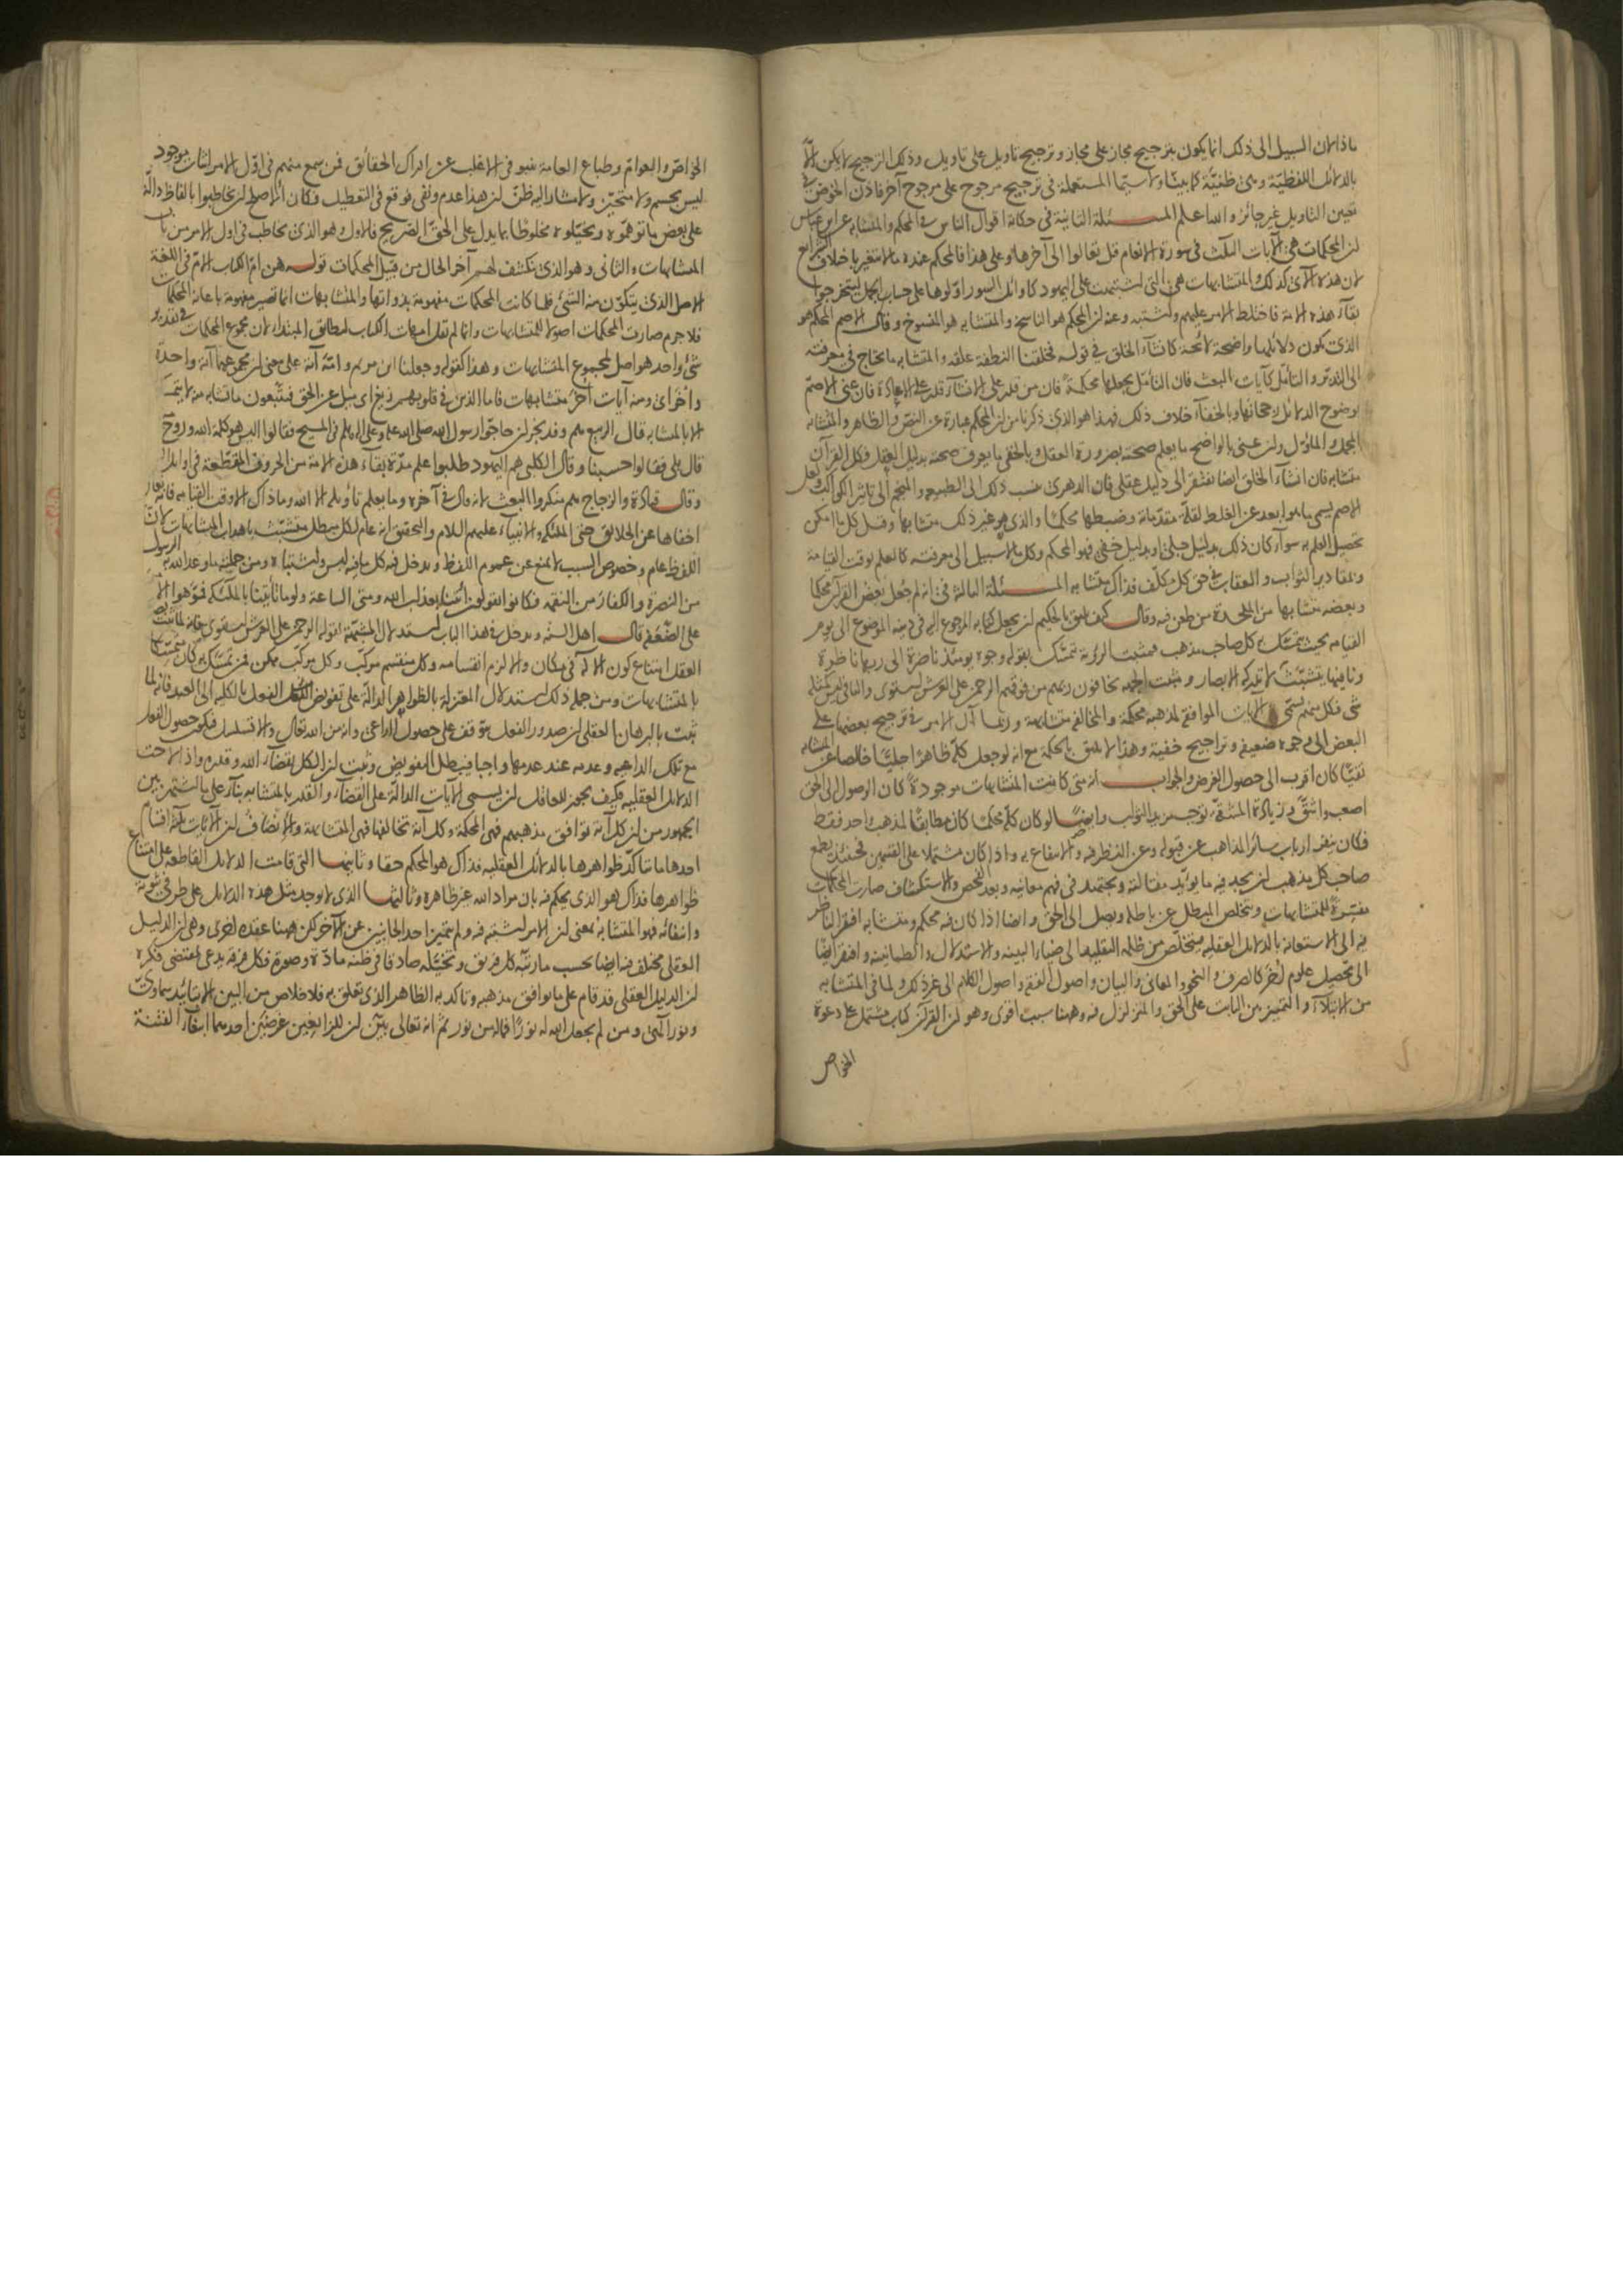 ماذا لان السبيل الى ذلك انما يكون بترجيح مجاز على مجاز وترجيح تاويل على تاويل وذلك الترجيح لا يمكن الا
بالدلائل اللفظية وهى ظنية كما بينا ولا سيما المستعملة فى ترجيح مرجوح على مرجوح آخر فاذن الخوض فى
تعيين التاويل غير جائز والله اعلم المسئلة الثانية فى حكاية اقوال الناس فى المحكم والمتشابه عن ابن عباس
ان المحكمات هى الآيات الثلث فى سورة الانعام قل تعالوا الى آخرها وعلى هذا فالمحكم عنده ما لا يتغير باختلاف الشرائع
لان هذه الآى كذلك والمتشابهات هى التى اشتبهت على اليهود كاوائل السور اولوها على حساب الجمل ليستخرجوا
بقاء هذه الامة فاختلط الامر عليهم واشتبه وعنه ان المحكم هو الناسخ والمتشابه هو المنسوخ وقال الاصم المحكم هو
الذى يكون دلائلها واضحة لائحة كانشاء الخلق فى قوله فخلقنا النطفة علقة والمتشابه ما يحتاج فى معرفته
الى التدبر والتأمل كآيات البعث فان التأمل يجعلها محكمة فان من قدر على الانشاء قدر على الاعادة فان عنى الاصم
بوضوح الدلائل رجحانها وبالخفاء خلاف ذلك فهذا هو الذى ذكرنا من ان المحكم عبارة عن النص والظاهر والمتشابه
المجمل والمأول وان عنى بالواضح ما يعلم صحته بضرورة العقل وبالخفى ما يعرف صحته بدليل العقل فكل القرآن
متشابه فان انشاء الخلق ايضا يفتقر الى دليل عقلى فان الدهرى ينسب ذلك الى الطبيعة والمنجم الى تاثير الكواكب ولعل
الاصم يسمى ما هو ابعد عن الغلط لقلة مقدماته وضبطها محكما والذى هو غير ذلك متشابها وقيل كل ما امكن
تحصيل العلم به سواء كان ذلك بدليل جلى او بدليل خفى فهو المحكم وكل ما لا سبيل الى معرفته كالعلم بوقت القيامة
وبمقادير الثواب والعقاب فى حق كل مكلف فذاك متشابه المسئلة الثالثة فى انه لم جعل بعض القرآن محكما
وبعضه متشابها من الملحدة من طعن فيه وقال كيف يليق بالحكيم ان يجعل كتابه المرجوع اليه فى دينه الموضوع الى يوم
القيامة بحيث يتمسك به كل صاحب مذهب فمثبت الرؤية تمسك بقوله وجوه يومئذ ناضرة الى ربها ناظرة
ونافيها يتشبث بلا تدركه الابصار ومثبت الجهة يخافون ربهم من فوقهم الرحمن على العرش استوى والنافى ليس كمثله
شئ فكل منهم يسمى الآيات الموافقة لمذهبه محكمة والمخالفة متشابهة وربما آل الامر فى ترجيح بعضها على
البعض الى وجوه ضعيفة وتراجيح خفية وهذا لا يليق بالحكمة مع انه لو جعل كله ظاهرا جليا خالصا عن المتشابه
نقيا كان اقرب الى حصول الغرض والجواب انه متى كانت المتشابهات موجودة كان الوصول الى الحق
اصعب واشق وزيادة المشقة توجب مزيد الثواب وايضا لو كان كله محكما كان مطابقا لمذهب واحد فقط
فكان ينفر ارباب سائر المذاهب عن قبوله وعن النظر فيه والانتفاع به واذا كان مشتملا على القسمين فحينئذ يطمع
صاحب كل مذهب ان يجد فيه ما يؤيد مقالته ويجتهد فى فهم معانيه وبعد الفحص والاستكشاف صارت المحكمات
مفسرة للمتشابهات ويتخلص المبطل عن باطله ويصل الى الحق وايضا اذا كان فيه محكم ومتشابه افتقر الناظر
فيه الى الاستعانة بالدلائل العقلية فيتخلص من ظلمة التقليد الى ضياء البينة والاستدلال والطمانينة وافتقر ايضا
الى تحصيل علوم اخر كالصرف والنحو والمعانى والبيان واصول الفقه واصول الكلام الى غير ذلك ولما فى المتشابه
من الابتلاء والتمييز بين الثابت على الحق والمتزلزل فيه وههنا سبب اقوى وهو ان القرآن كتاب مشتمل على دعوة
الخواص
الخواص والعوام وطباع العامة تنبو فى الاغلب عن ادراك الحقائق فمن سمع منهم فى اول الامر اثبات موجود
ليس بجسم ولا متحيز ولا مشار اليه ظن ان هذا عدم ونفى فوقع فى التعطيل فكان الاصلح ان يخاطبوا بالفاظ دالة
على بعض ما توهموه وتخيلوه مخلوطا بما يدل على الحق الصريح فالاول وهو الذى يخاطب فى اول الامر من باب
المتشابهات والثانى وهو الذى يكشف لهم آخر الحال من قبيل المحكمات قوله هن ام الكتاب الام فى اللغة
الاصل الذى يتكون منه الشئ فلما كانت المحكمات مفهومة بذواتها والمتشابهات انما تصير مفهومة باعانة المحكمات
فلا جرم صارت المحكمات اصولا للمتشابهات وانما لم يقل امهات الكتاب ليطابق المبتدا لان مجموع المحكمات فى تقدير
شئ واحد هو اصل لمجموع المتشابهات وهذا كقوله وجعلنا ابن مريم وامه آية على معنى ان مجموعهما آية واحدة
واخر اى ومنه آيات أخر متشابهات فاما الذين فى قلوبهم زيغ اى ميل عن الحق فيتبعون ما تشابه منه لا يتمسكون
الا بالمتشابه قال الربيع هم وفد نجران حاجوا رسول الله صلى الله عليه وعلى آله وسلم فى المسيح فقالوا اليس هو كلمة الله وروح منه
قال بلى فقالوا حسبنا وقال الكلبى هم اليهود طلبوا علم مدة بقاء هذه الامة من الحروف المقطعة فى اوائل السور
وقال قتادة والزجاج هم منكروا البعث لانه قال فى آخره وما يعلم تأويله الا الله وما ذاك الا وقت القيامة فانه تعالى
اخفاها عن الخلائق حتى الملئكة والانبياء عليهم السلام والتحقيق انه عام لكل مبطل متشبث باهداب المتشابهات لان
اللفظ عام وخصوص السبب لا يمنع عن عموم اللفظ ويدخل فيه كل ما فيه لبس واشتباه ومن جملته ما وعد الله به الرسول
من النصرة والكفار من النقمة فكانوا يقولون ائتنا بعذاب الله ومتى الساعة ولو ما تأتينا بالملئكة فموهوا الامر
على الضعفة قال اهل السنة ويدخل فى هذا الباب استدلال المشبهة بقوله الرحمن على العرش استوى فانه لما ثبت بصريح
العقل امتناع كون الاله فى مكان والا لزم انقسامه وكل منقسم مركب وكل مركب ممكن فمن تمسك به كان متمسكا
بالمتشابهات ومن جملة ذلك استدلال المعتزلة بالظواهر الدالة على تفويض الفعل بالكلية الى العبد فانه لما
ثبت بالبرهان العقلى ان صدور الفعل يتوقف على حصول الداعى وانه من الله تعالى والا تسلسل فيكون حصول الفعل
مع تلك الداعية وعدمه عند عدمها واجبا فيبطل التفويض وثبت ان الكل بقضاء الله وقدره واذا لاحت
الدلائل العقلية فكيف يجوز للعاقل ان يسمى الآيات الدالة على القضاء والقدر بالمتشابه بناء على ما اشتهر بين
الجمهور من ان كل آية توافق مذهبهم فهى المحكمة وكل آية تخالفها فهى المتشابهة والانصاف ان الآيات ثلثة اقسام
احدها ما يتاكد ظواهرها بالدلائل العقلية فذاك هو المحكم حقا وثانيها التى قامت الدلائل القاطعة على امتناع
ظواهرها فذاك هو الذى يحكم فيه بان مراد الله غير ظاهره وثالثها الذى لا يوجد مثل هذه الدلائل على طرفى ثبوته
وانتفائه فهو المتشابه بمعنى ان الامر اشتبه فيه ولم يتميز احد الجانبين عن الآخر لكن ههنا عقدة اخرى وهى ان الدليل
العقلى مختلف فيه ايضا بحسب ما رتبه كل فريق وتخيله صادقا فى ظنه مادة وصورة فكل فرقة يدعى بمقتضى فكره
ان الدليل العقلى قد قام على ما يوافق مذهبه وتاكد به الظاهر الذى تعلق به فلا خلاص من البين الا بتائيد سماوى
ونور الهى ومن لم يجعل الله له نورا فما له من نور ثم انه تعالى بين ان للزائغين غرضين احدهما ابتغاء الفتنة